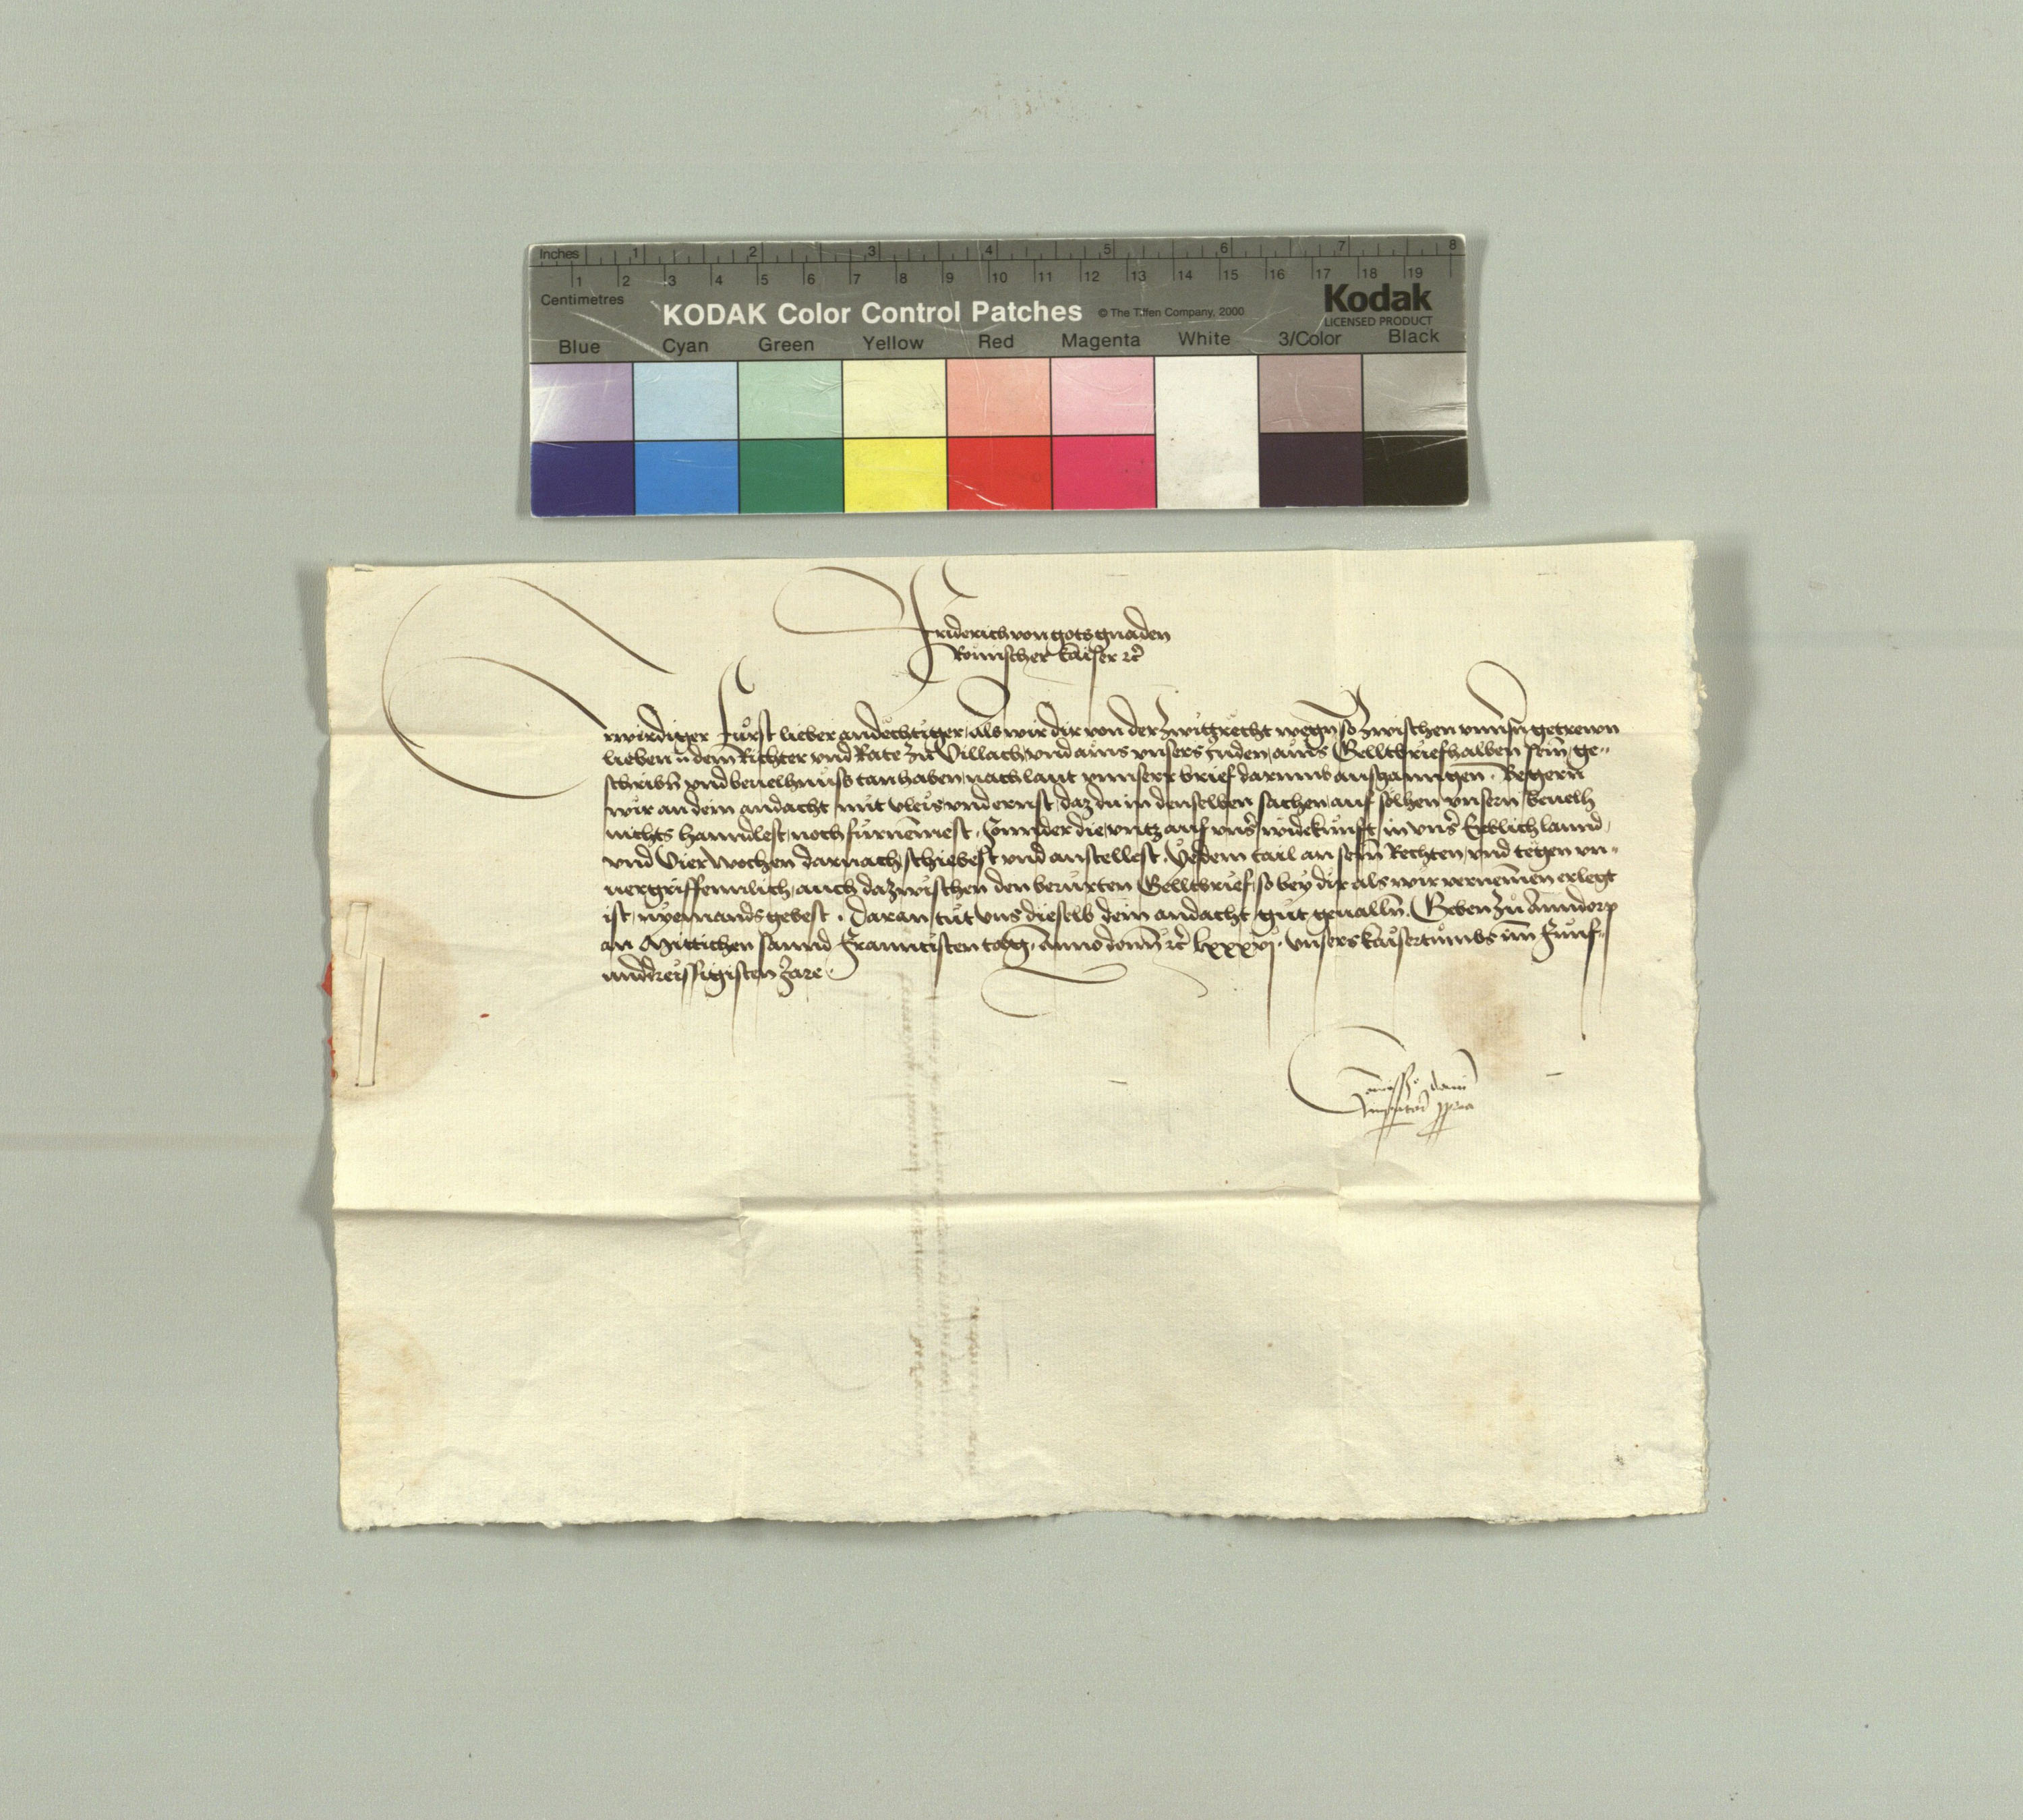 Inches 1 2 3 4 5 6 7 8
1 2 3 4 5 6 7 8 9 10 11 12 13 14 15 16 17 18 19
Centimetres
KODAK Color Control Patches © The Tiffen Company, 2000
Kodak
LICENSED PRODUCT
Blue Cyan Green Yellow Red Magenta White 3/Color Black
Friderich von gots gnaden
Römischer kaiser ꝛc̄
Erwirdiger Fürst lieber andechtiger, als wir dir von der Zwitrecht wegn, so zwischen unnsn̄ getrewn
lieben N dem Richter vnd Rate zu Villach, vnd ains vnsers Juden, ains Gelltbriefhalben sein, ge-
schribn̄ vnd beuelhnuss tan haben, nach laut vnnserr brief darumb ausganngen. Begern
wir an dein andacht mit vleis vnd ernst, daz du in denselben sachen, auf solhen vnsern beuelh
nichts hanndlest, noch fürnemest, Sonnder die, vntz auf vns̄ widerkunft, in vns̄ Erblich lannd,
vnd Vier wochen darnach schiebest vnd anstellest. Yedem tail an sein Rechten, vnd tegen vn-
uergriffennlich, auch dazwischen den berürten Gelltbrief, so bey dir als wir vernemen erlegt
ist, nyemands gebest. Daran tut vns dieselb dein andacht gut geualln̄. Geben zu Anndorp
an Mittichen sannd Franncisten tag, Anno domī ꝛc̄ lxxxvj. Vnsers kaisertumbs im Fünf-
unddreissigisten Jare.
Commissio domī
Imperatoris ppria